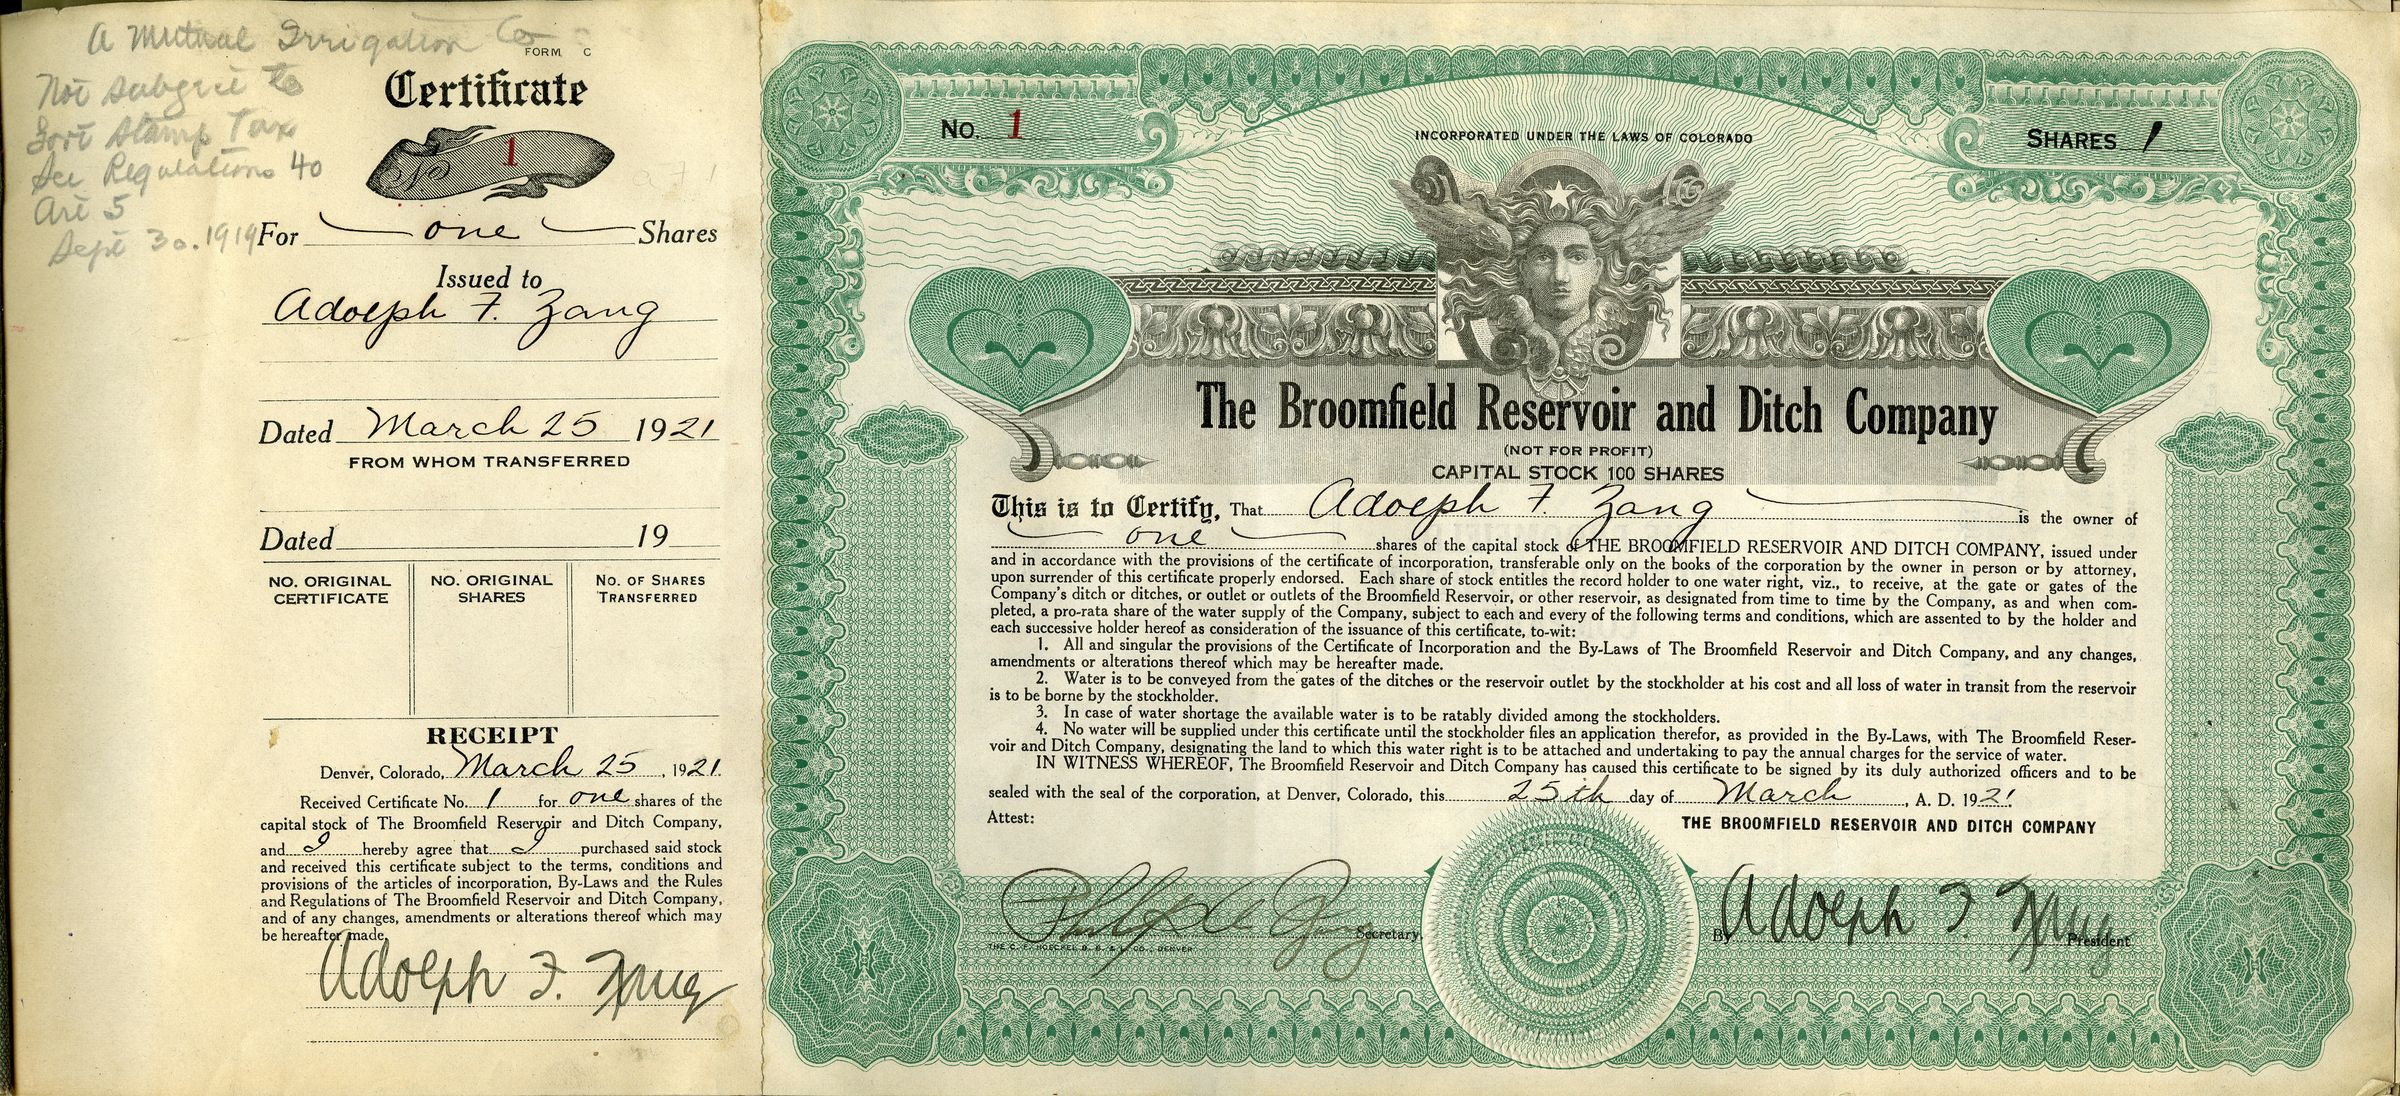 A Mutual Irrigation Co
Not subject to
Govt Stamp Tax
See Regulations 40
Art 5
Sept 30. 1919
FORM C
Certificate
No 1
For one Shares
Issued to
Adolph F. Zang
Dated March 25 1921
FROM WHOM TRANSFERRED
Dated 19
NO. ORIGINAL CERTIFICATE
NO. ORIGINAL SHARES
NO. OF SHARES TRANSFERRED
RECEIPT
Denver, Colorado, March 25, 1921.
Received Certificate No. 1 for one shares of the
capital stock of The Broomfield Reservoir and Ditch Company,
and I hereby agree that I purchased said stock
and received this certificate subject to the terms, conditions and
provisions of the articles of incorporation, By-Laws and the Rules
and Regulations of The Broomfield Reservoir and Ditch Company,
and of any changes, amendments or alterations thereof which may
be hereafter made.
Adolph F. Zang
NO. 1
INCORPORATED UNDER THE LAWS OF COLORADO
SHARES 1
The Broomfield Reservoir and Ditch Company
(NOT FOR PROFIT)
CAPITAL STOCK 100 SHARES
This is to Certify, That Adolph F. Zang is the owner of
one shares of the capital stock of THE BROOMFIELD RESERVOIR AND DITCH COMPANY, issued under
and in accordance with the provisions of the certificate of incorporation, transferable only on the books of the corporation by the owner in person or by attorney,
upon surrender of this certificate properly endorsed. Each share of stock entitles the record holder to one water right, viz., to receive, at the gate or gates of the
Company's ditch or ditches, or outlet or outlets of the Broomfield Reservoir, or other reservoir, as designated from time to time by the Company, as and when com-
pleted, a pro-rata share of the water supply of the Company, subject to each and every of the following terms and conditions, which are assented to by the holder and
each successive holder hereof as consideration of the issuance of this certificate, to-wit:
1. All and singular the provisions of the Certificate of Incorporation and the By-Laws of The Broomfield Reservoir and Ditch Company, and any changes,
amendments or alterations thereof which may be hereafter made.
2. Water is to be conveyed from the gates of the ditches or the reservoir outlet by the stockholder at his cost and all loss of water in transit from the reservoir
is to be borne by the stockholder.
3. In case of water shortage the available water is to be ratably divided among the stockholders.
4. No water will be supplied under this certificate until the stockholder files an application therefor, as provided in the By-Laws, with The Broomfield Reser-
voir and Ditch Company, designating the land to which this water right is to be attached and undertaking to pay the annual charges for the service of water.
IN WITNESS WHEREOF, The Broomfield Reservoir and Ditch Company has caused this certificate to be signed by its duly authorized officers and to be
sealed with the seal of the corporation, at Denver, Colorado, this 25th day of March, A. D. 1921.
Attest:
THE BROOMFIELD RESERVOIR AND DITCH COMPANY
Philip A Zang Secretary.
By Adolph F. Zang President
THE C. F. HOECKEL B. B. & L. CO., DENVER